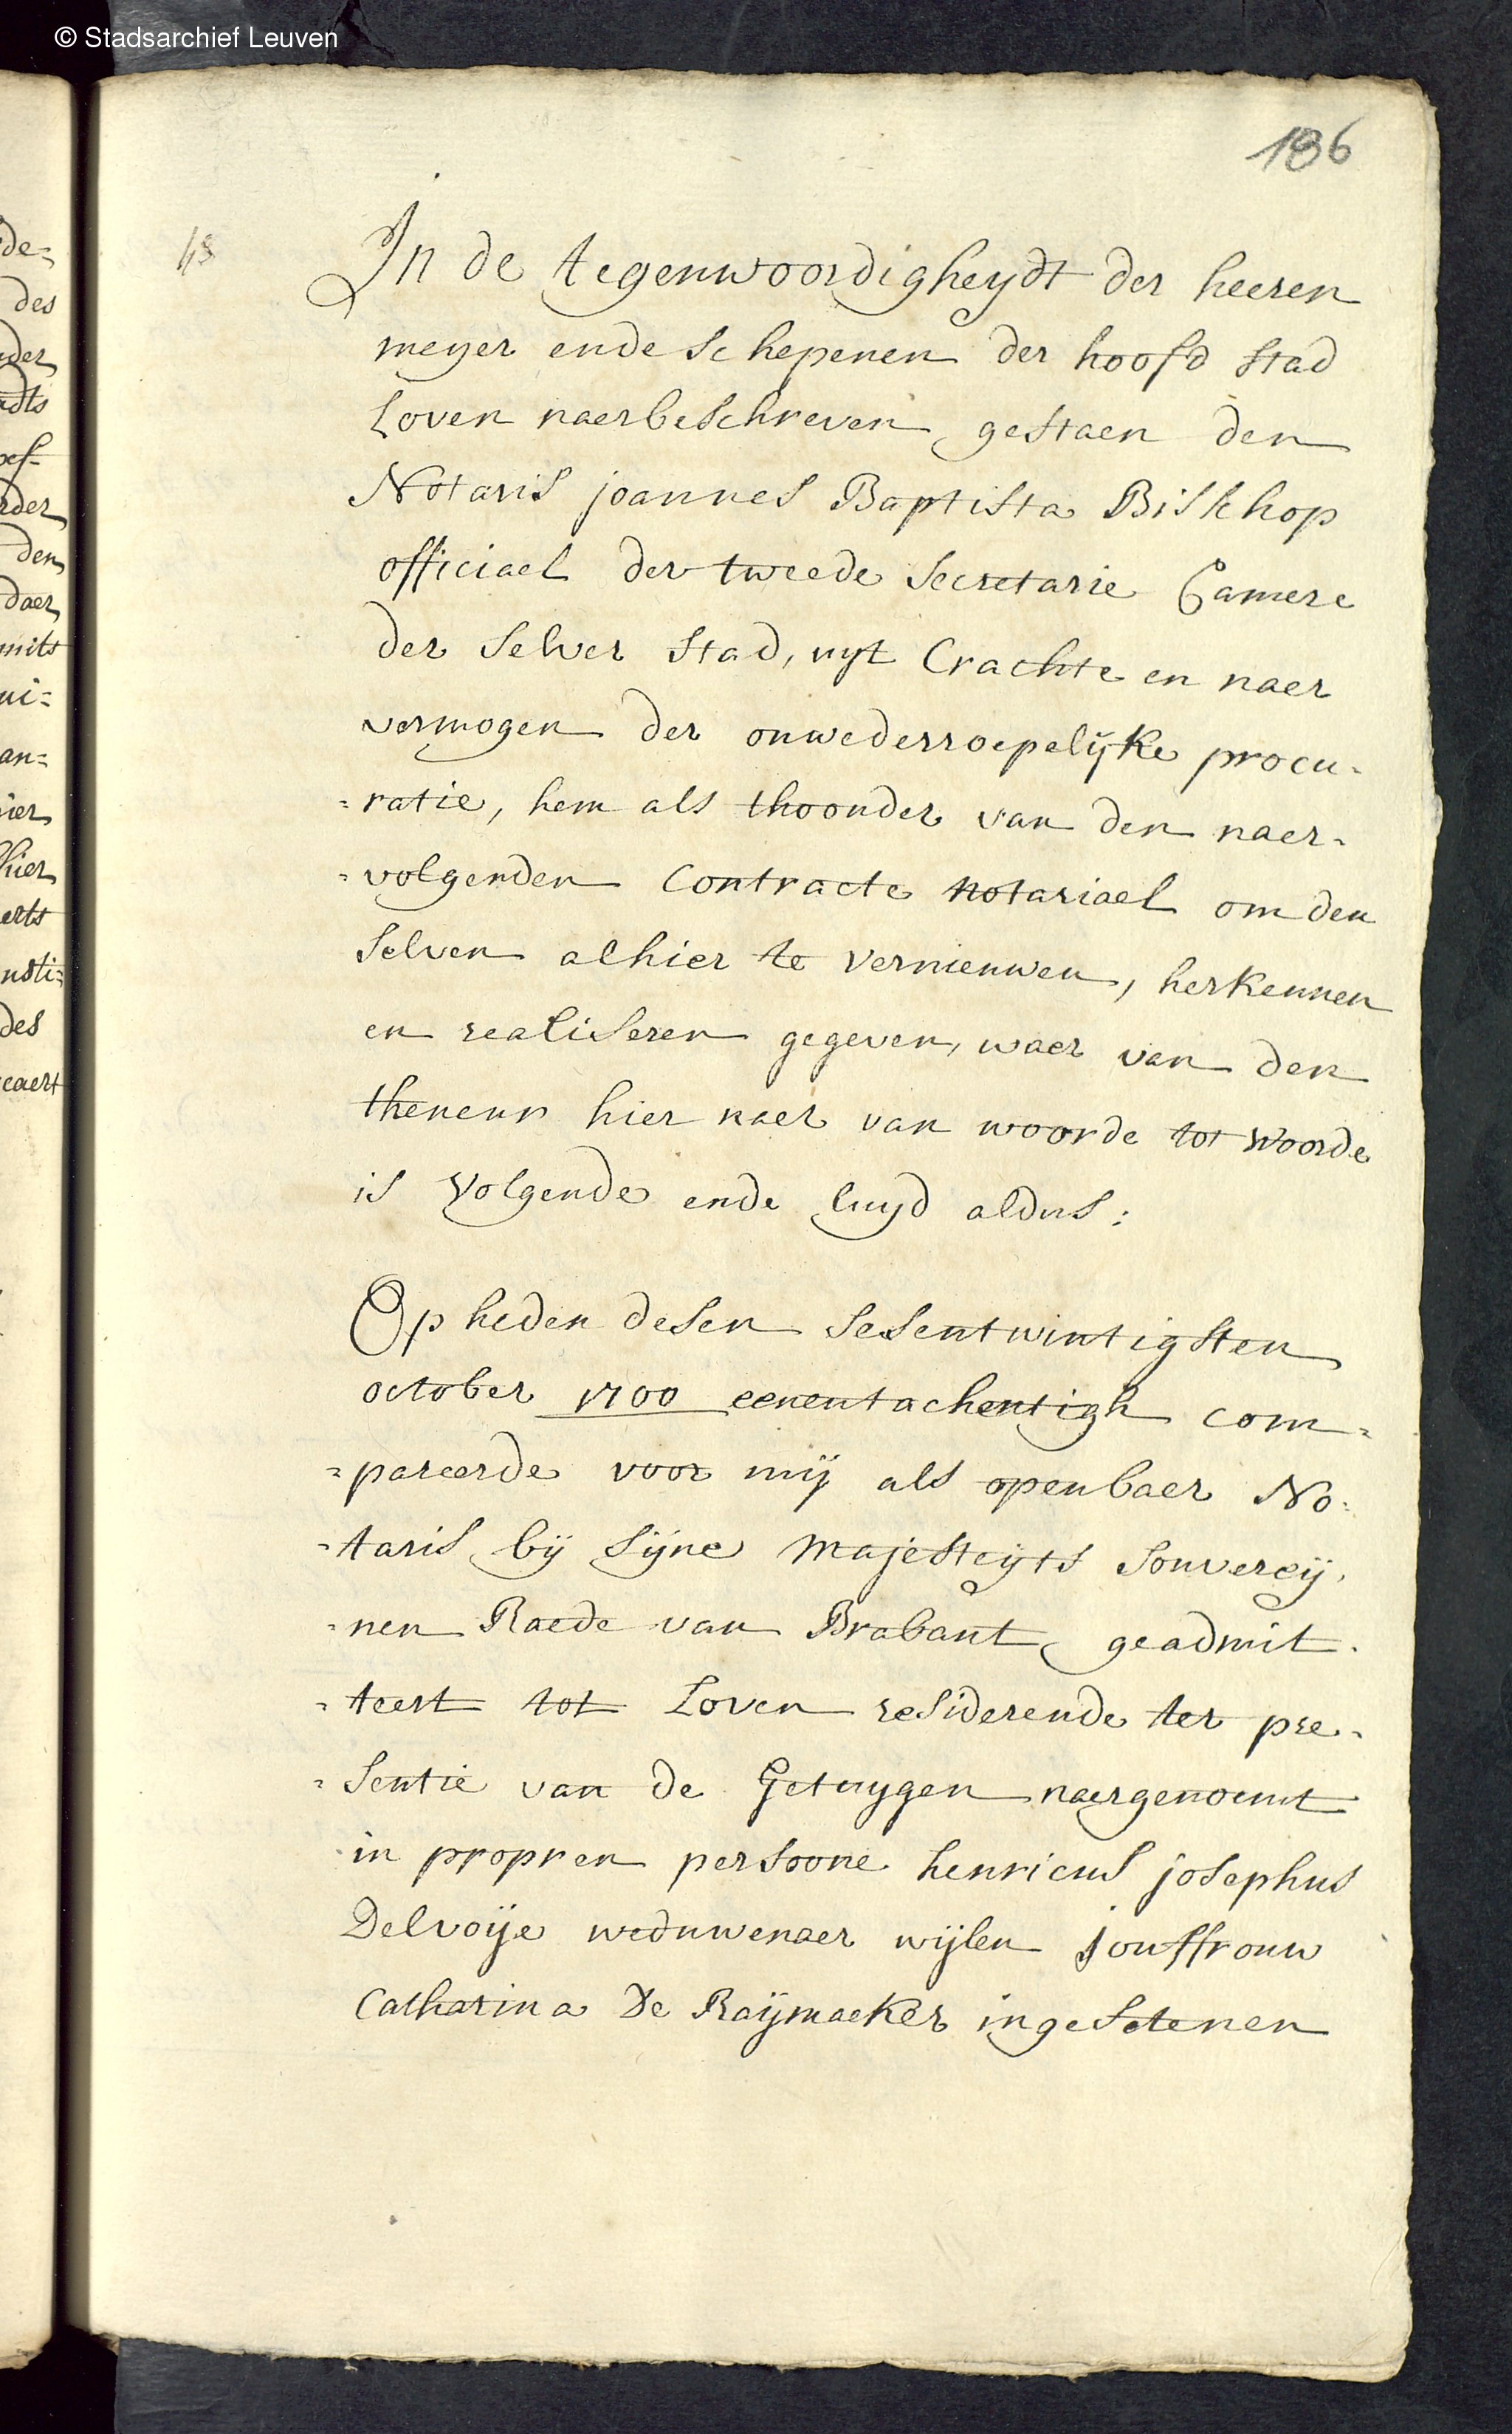 © Stadsarchief Leuven
186
In de tegenwoordigheydt der heeren
meyer ende schepenen der hoofd stad
Loven naerbeschreven, gestaen den
Notaris joannes Baptista Biskhop
officiael der tweede secretarie Camere
der selver stad, uyt Crachte en naer
vermogen der onwederroepelijke procu-
=ratie, hem als thoonder van den naer-
=volgenden Contracte notariael om den
selven alhier te vernieuwen, herkennen
en realiseren gegeven, waer van den
theneur hier naer van woorde tot woorde
is volgende ende luyd aldus:
Op heden desen sesentwintigsten
october 1700 eenentachentigh com-
=pareerde voor mij als openbaer No:
=taris bij sijne majesteyts souvereij,
=nen Raede van Brabant, geadmit-
=teert tot Loven residerende ter pre-
=sentie van de Getuygen naergenoemt
in propren persoone henricus josephus
Delvoije weduwenaer wijlen jouffrouw
Catharina De Raijmaeker ingesetenen
de=
des
der
dts
rder
den
daer
mits
ui=
an=
ier
hier
erts
des